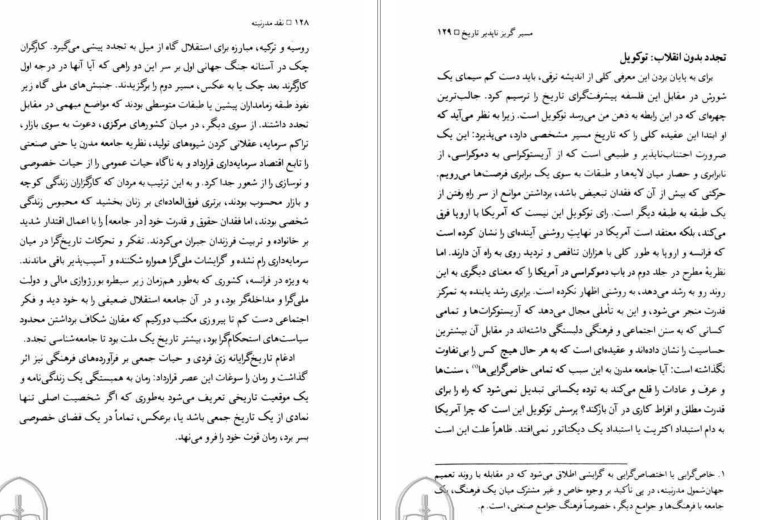 ۱۲۸ □ نقد مدرنیته
روسیه و ترکیه، مبارزه برای استقلال گاه از میل به تجدد پیشی می‌گیرد. کارگران
چک در آستانه جنگ جهانی اول بر سر این دو راهی که آیا آنها در درجه اول
کارگرند بعد چک یا به عکس، مسیر دوم را برگزیدند. جنبش‌های ملی گاه زیر
نفوذ طبقه زمامداران پیشین یا طبقات متوسطی بودند که مواضع مبهمی در مقابل
تجدد داشتند. از سوی دیگر، در میان کشورهای مرکزی، دعوت به سوی بازار،
تراکم سرمایه، عقلانی کردن شیوه‌های تولید، نظریه جامعه مدرن یا حتی صنعتی
را تابع اقتصاد سرمایه‌داری قرارداد و به ناگاه حیات عمومی را از حیات خصوصی
و نوسازی را از شعور جدا کرد. و به این ترتیب به مردان که کارگزاران زندگی کوچه
و بازار محسوب بودند، برتری فوق‌العاده‌ای بر زنان بخشید که محبوس زندگی
شخصی بودند، اما فقدان حقوق و قدرت خود [در جامعه] را با اعمال اقتدار شدید
بر خانواده و تربیت فرزندان جبران می‌کردند. تفکر و تحرکات تاریخ‌گرا در میان
سرمایه‌داری رام نشده و گرایشات ملی‌گرا همواره شکننده و آسیب‌پذیر باقی ماندند.
به ویژه در فرانسه، کشوری که به‌طور هم‌زمان زیر سیطره بورژوازی مالی و دولت
ملی‌گرا و مداخله‌گر بود، و در آن جامعه استقلال ضعیفی را به خود دید و فکر
اجتماعی دست کم تا پیروزی مکتب دورکیم که مقارن شکاف برداشتن محدود
سیاست‌های استحکام‌گرا بود، بیشتر تاریخ یک ملت بود تا جامعه‌شناسی تجدد.
ادغام تاریخ‌گرایانه زیّ فردی و حیات جمعی بر فرآورده‌های فرهنگی نیز اثر
گذاشت و رمان را سوغات این عصر قرارداد: رمان به همبستگی یک زندگی‌نامه و
یک موقعیت تاریخی تعریف می‌شود به‌طوری که اگر شخصیت اصلی تنها
نمادی از یک تاریخ جمعی باشد یا، برعکس، تماماً در یک فضای خصوصی
بسر برد، رمان قوت خود را فرو می‌نهد.
مسیر گریز ناپذیر تاریخ □ ۱۲۹
تجدد بدون انقلاب: توکویل
برای به پایان بردن این معرفی کلی از اندیشه ترقی، باید دست کم سیمای یک
شورش در مقابل این فلسفه پیشرفت‌گرای تاریخ را ترسیم کرد. جالب‌ترین
چهره‌ای که در این رابطه به ذهن من می‌رسد توکویل است. زیرا به نظر می‌آید که
او ابتدا این عقیده کلی را که تاریخ مسیر مشخصی دارد، می‌پذیرد: این یک
ضرورت اجتناب‌ناپذیر و طبیعی است که از آریستوکراسی به دموکراسی، از
نابرابری و حصار میان لایه‌ها و طبقات به سوی یک برابری فرصت‌ها می‌رویم.
حرکتی که بیش از آن که فقدان تبعیض باشد، برداشتن موانع از سر راهِ رفتن از
یک طبقه به طبقه دیگر است. رای توکویل این نیست که آمریکا با اروپا فرق
می‌کند، بلکه معتقد است آمریکا در نهایت روشنی آینده‌ای را نشان کرده است
که فرانسه و اروپا به طور کلی با هزاران تناقص و تردید روی به راه آن دارند. اما
نظریهٔ مطرح در جلد دوم در باب دموکراسی در آمریکا را که معنای دیگری به این
روند رو به رشد می‌دهد، به روشنی اظهار نکرده است. برابری رشد یابنده به تمرکز
قدرت منجر می‌شود، و این به تأملی مجال می‌دهد که آریستوکرات‌ها و تمامی
کسانی که به سنن اجتماعی و فرهنگی دلبستگی داشته‌اند در مقابل آن بیشترین
حساسیت را نشان داده‌اند و عقیده‌ای است که به هر حال هیچ کس را بی‌تفاوت
نگذاشته است: آیا جامعه مدرن به این سبب که تمامی خاص‌گرایی‌ها(۱)، سنت‌ها
و عرف و عادات را قلع می‌کند به توده یکسانی تبدیل نمی‌شود که راه را برای
قدرت مطلق و افراط کاری در آن بازکند؟ پرسش توکویل این است که چرا آمریکا
به دام استبداد اکثریت یا استبداد یک دیکتاتور نمی‌افتد. ظاهراً علت این است
۱. خاص‌گرایی یا اختصاص‌گرایی به گرایشی اطلاق می‌شود که در مقابله با روند تعمیم
جهان‌شمول مدرنیته، در پی تأکید بر وجوه خاص و غیر مشترک میان یک فرهنگ، یک
جامعه با فرهنگ‌ها و جوامع دیگر، خصوصاً فرهنگ جوامع صنعتی، است. م.